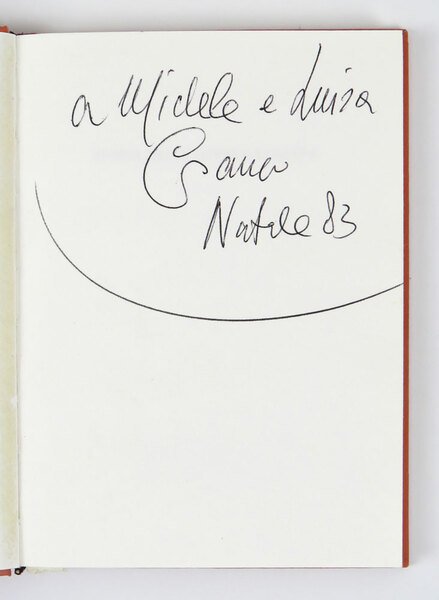 a Michele e Luisa
Natale 83